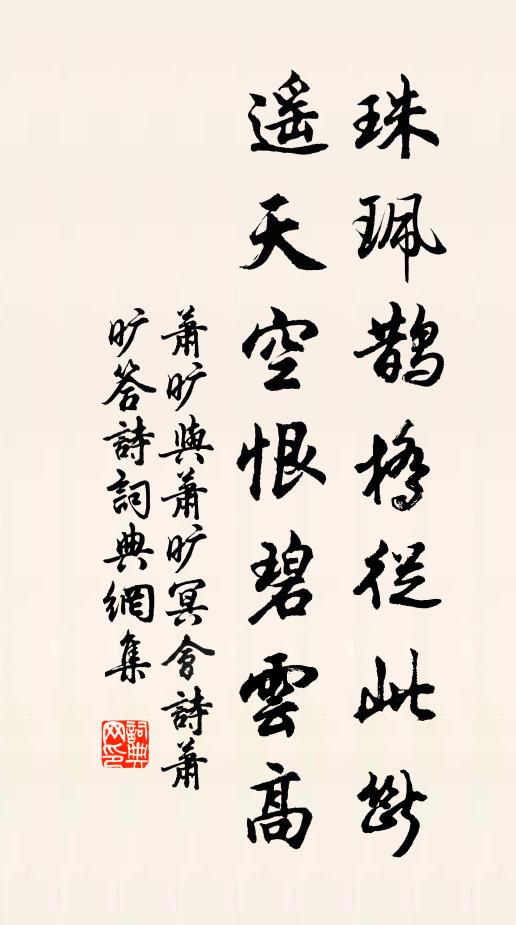 珠珮鵲橋從此斷
遥天空恨碧雲高
蕭旷與蕭旷冥會詩蕭
旷答詩詞典網集
詞典
网印